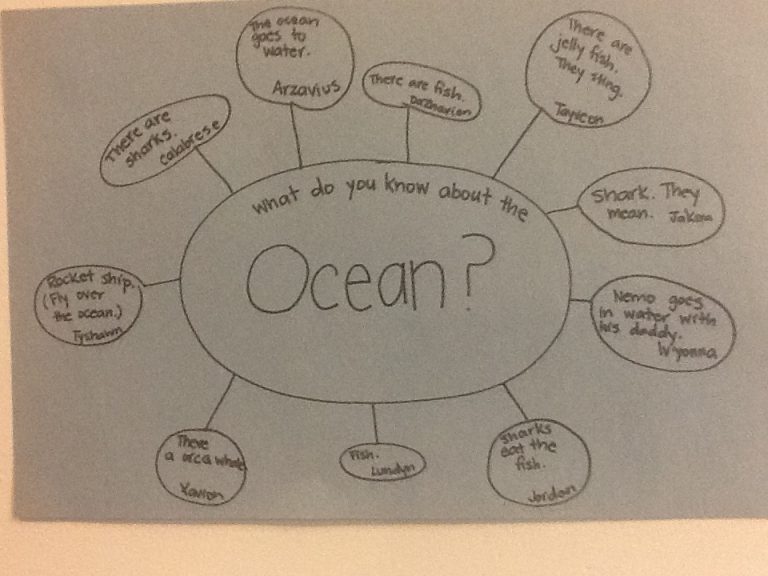 What do you know about the
Ocean?
The ocean
goes to
water.
Arzavius
There are fish.
Dazhavion
There are
jelly fish.
They sting.
Tayveon
Shark. They
mean. JaKora
Nemo goes
in water with
his daddy.
W'yonna
Sharks
eat the
fish.
Jordan
Fish.
Lundyn
There
a orca whale
Xavion
Rocket ship.
(Fly over
the ocean.)
Tyshawn
There are
sharks.
Calabrese